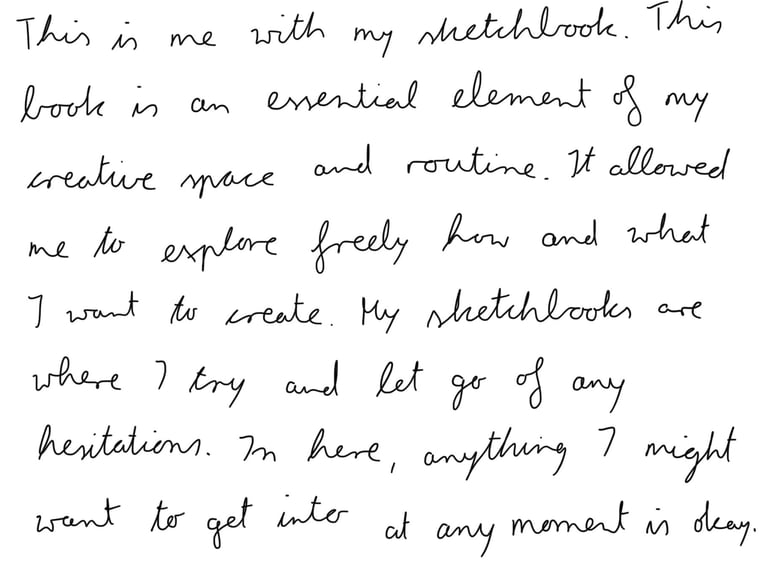 This is me with my sketchbook. This
book is an essential element of my
creative space and routine. It allowed
me to explore freely how and what
I want to create. My sketchbooks are
where I try and let go of any
hesitations. In here, anything I might
want to get into at any moment is okay.